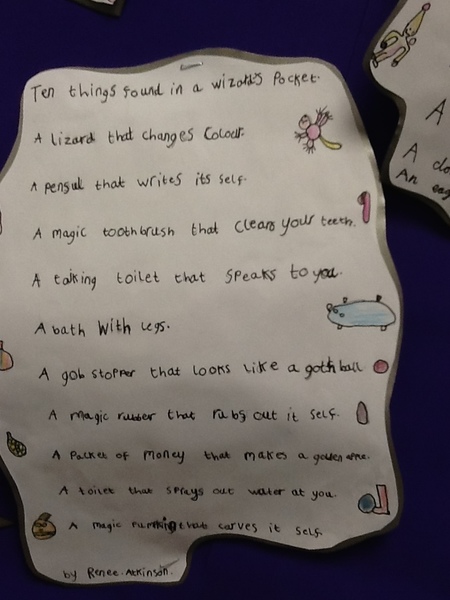 Ten things found in a wizard's Pocket.
A lizard that changes Colour.
A pensul that writes its self.
A magic toothbrush that cleans your teeth.
A talking toilet that speaks to you.
A bath with legs.
A gob stopper that looks like a goth ball
A magic rubber that rubs out it self.
A Packet of money that makes a golden
A toilet that sprays out water at you.
A magic that carves it self.
by Renee Atkinson.
A
A
An